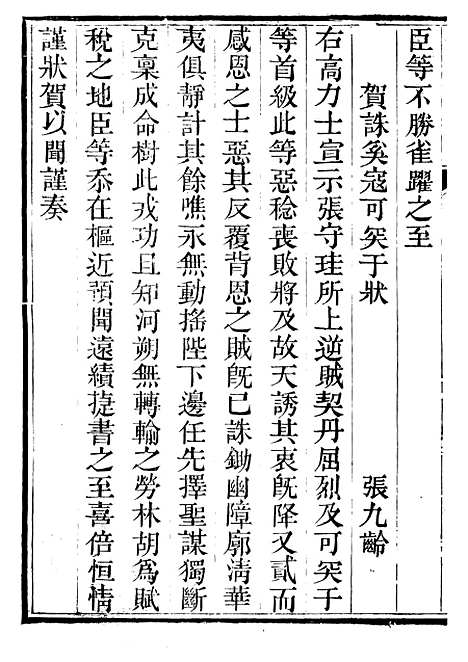 臣等不勝雀躍之至
賀誅奚寇可突于狀 張九齡
右高力士宣示張守珪所上逆賊契丹屈烈及可突于
等首級此等惡稔喪敗將及故天誘其衷旣降又貳而
感恩之士惡其反覆背恩之賊旣已誅鋤幽障廓淸華
夷俱靜計其餘噍永無動搖陛下邊任先擇聖謀獨斷
克稟成命樹此戎功且知河朔無轉輸之勞林胡爲賦
稅之地臣等忝在樞近預聞遠績捷書之至喜倍恒情
謹狀賀以聞謹奏